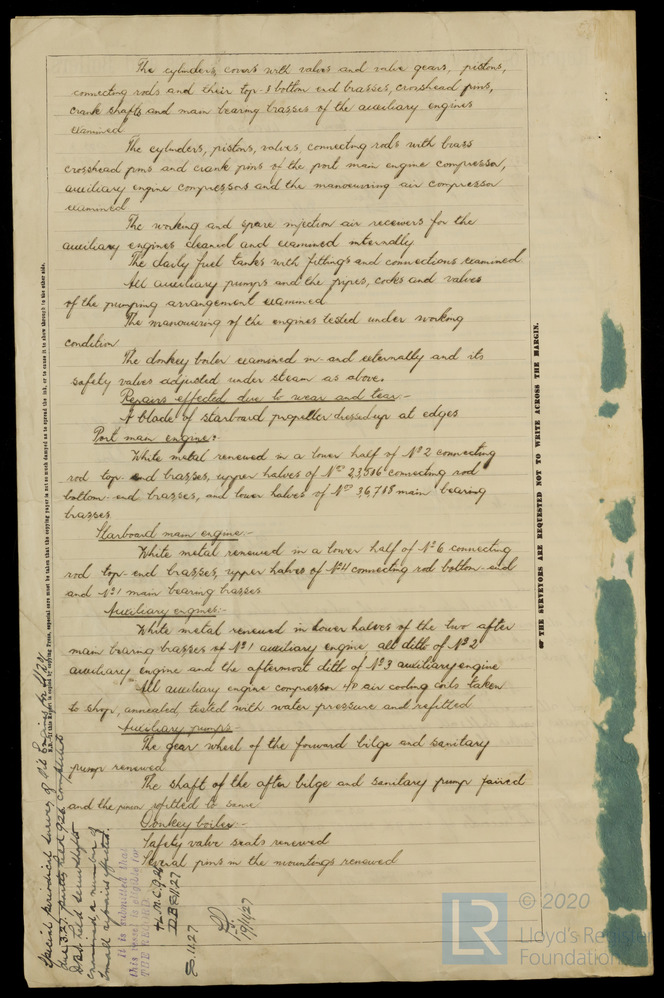 The cylinders, covers with valves and valve gears, pistons,
connecting rods and their top & bottom end brasses, crosshead pins,
crank shafts and main bearing brasses of the auxiliary engines
examined
The cylinders, pistons, valves, connecting rods with brass
crosshead pins and crank pins of the port main engine compressor,
auxiliary engine compressors and the manoeuvring air compressor
examined
The working and spare injection air receivers for the
auxiliary engines cleaned and examined internally
The daily fuel tanks with fittings and connections examined
All auxiliary pumps and the pipes, cocks and valves
of the pumping arrangement examined
The manoeuvring of the engines tested under working
condition
The donkey boiler examined in- and externally and its
safety valves adjusted under steam as above.
Repairs effected due to wear and tear:-
A blade of starboard propeller dressed up at edges
Port main engine:-
White metal renewed in a lower half of No 2 connecting
rod top-end brasses, upper halves of Nos connecting rod
bottom-end brasses, and lower halves of Nos main bearing
brasses.
Starboard main engine:-
White metal renewed in a lower half of No 6 connecting
rod top-end brasses, upper halves of No 4 connecting rod bottom-end
and No 1 main bearing brasses
Auxiliary engines:-
White metal renewed in lower halves of the two after
main bearing brasses of No 1 auxiliary engine, all ditto of No 2
auxiliary engine and the aftermost ditto of No 3 auxiliary engine
All auxiliary engine compressor air cooling coils taken
to shop, annealed, tested with water pressure and refitted
Auxiliary pumps:-
The gear wheel of the forward bilge and sanitary
pump renewed
The shaft of the after bilge and sanitary pump faired
and the pinion refitted to same
Donkey boiler:-
Safety valve seats renewed
Several pins in the mountings renewed
OF THE SURVEYORS ARE REQUESTED NOT TO WRITE ACROSS THE MARGIN.
Special periodical survey of Oil Engines
due 3.27, partly held 9.26 completed
examined a number of
small repairs effected.
It is submitted that
this vessel is eligible for
THE RECORD
+L.M.C. 9.26
D.B.S. 11.27
19/11/27
LR
© 2020
Lloyd's Register
Foundation